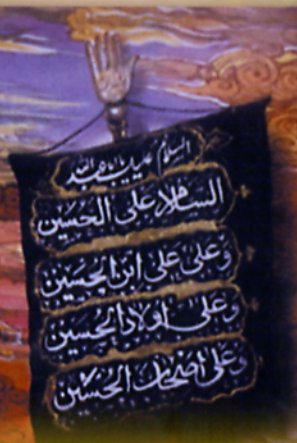 السلام علیک یا اباعبدالله
السلام علی الحسین
وعلی علی ابن الحسین
وعلی اولاد الحسین
وعلی اصحاب الحسین